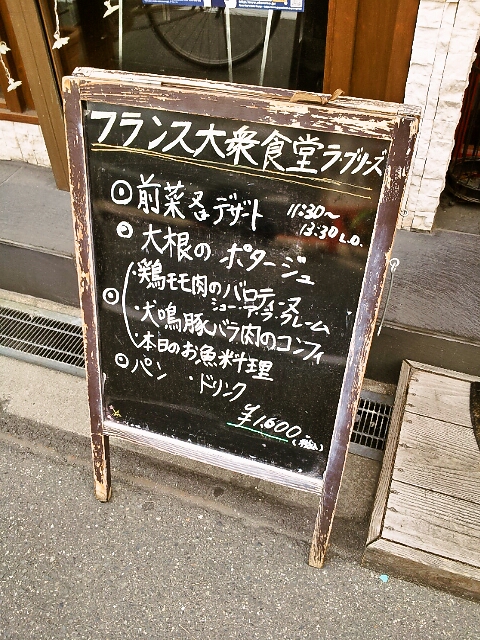 フランス大衆食堂ラブリーズ
◎前菜又はデザート 11:30〜
13:30 L.O.
◎大根のポタージュ
・鶏モモ肉のバロティーヌ
ショー・ア・ラ・クレーム
◎・犬鳴豚バラ肉のコンフィ
・本日のお魚料理
◎パン ・ドリンク
¥1,600(税込)